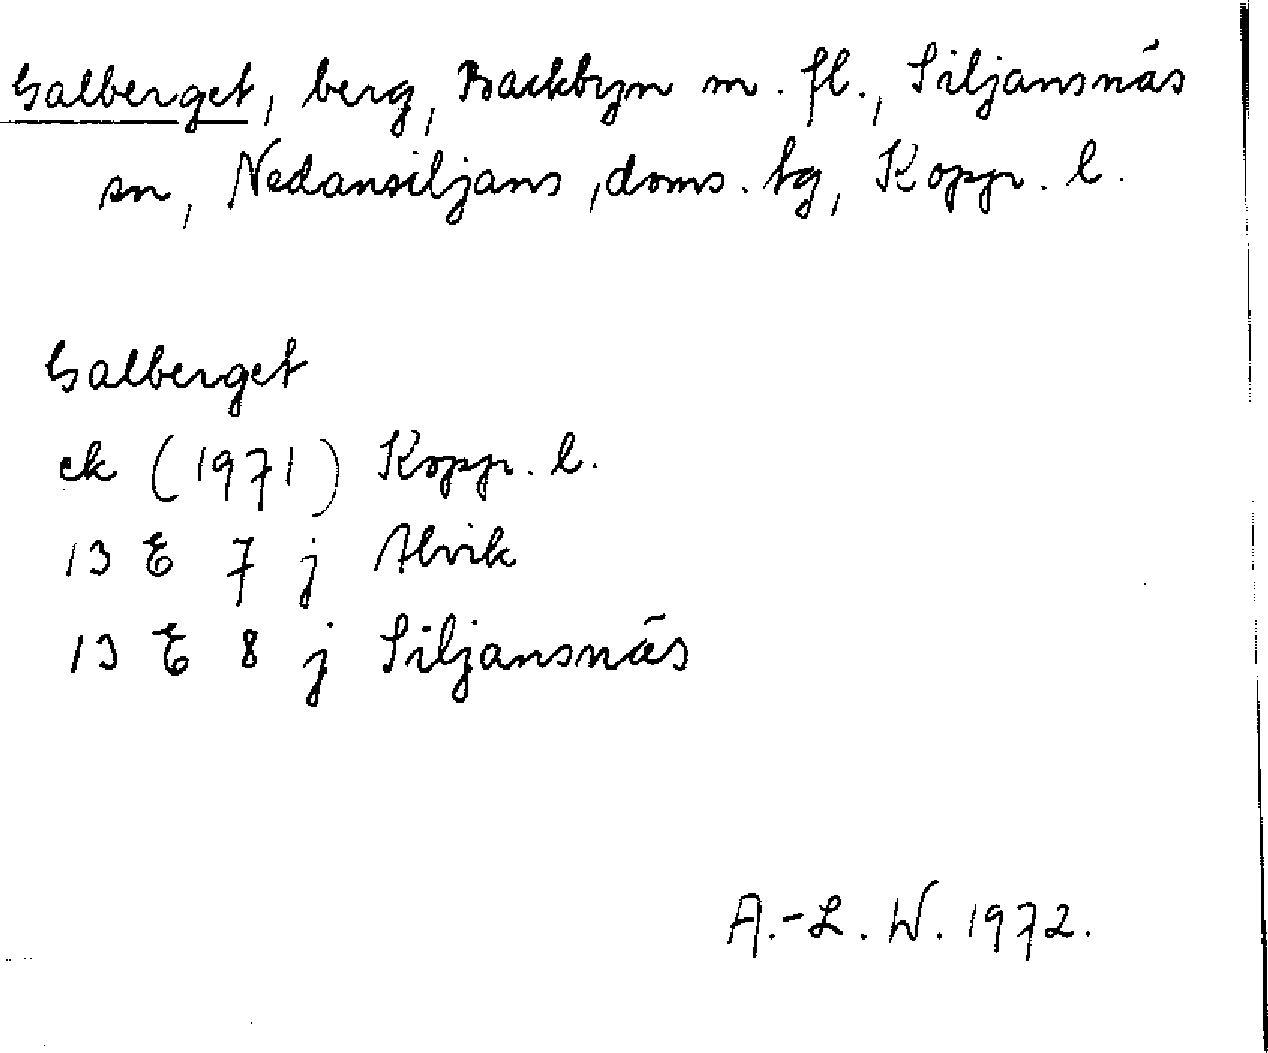 Galberget, berg, Backbyn m. fl., Siljansnäs
sn, Nedansiljans, doms. tg, Kopp. l.
Galberget
ek (1971) Kopp. l.
13 E 7 j Alvik
13 E 8 j Siljansnäs
A.-L. W. 1972.